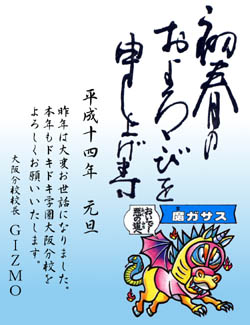 初春の
およろこびを
申し上げます
平成十四年 元旦
昨年は大変お世話になりました。
本年もドキドキ学園大阪分校を
よろしくお願いいたします。
大阪分校校長 GIZMO
魔ガサス